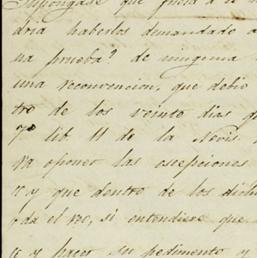 Supongase que fuera a el
dria haberlos demandado a
na prueba? de ninguna
una reconvencion, que debio
tro de los veinto dias q
7º lib. 11 de la Novis.
ra oponer las escepciones
s y que dentro de los dichos
da el reo, si entendiere que
s y hacer su pedimento y